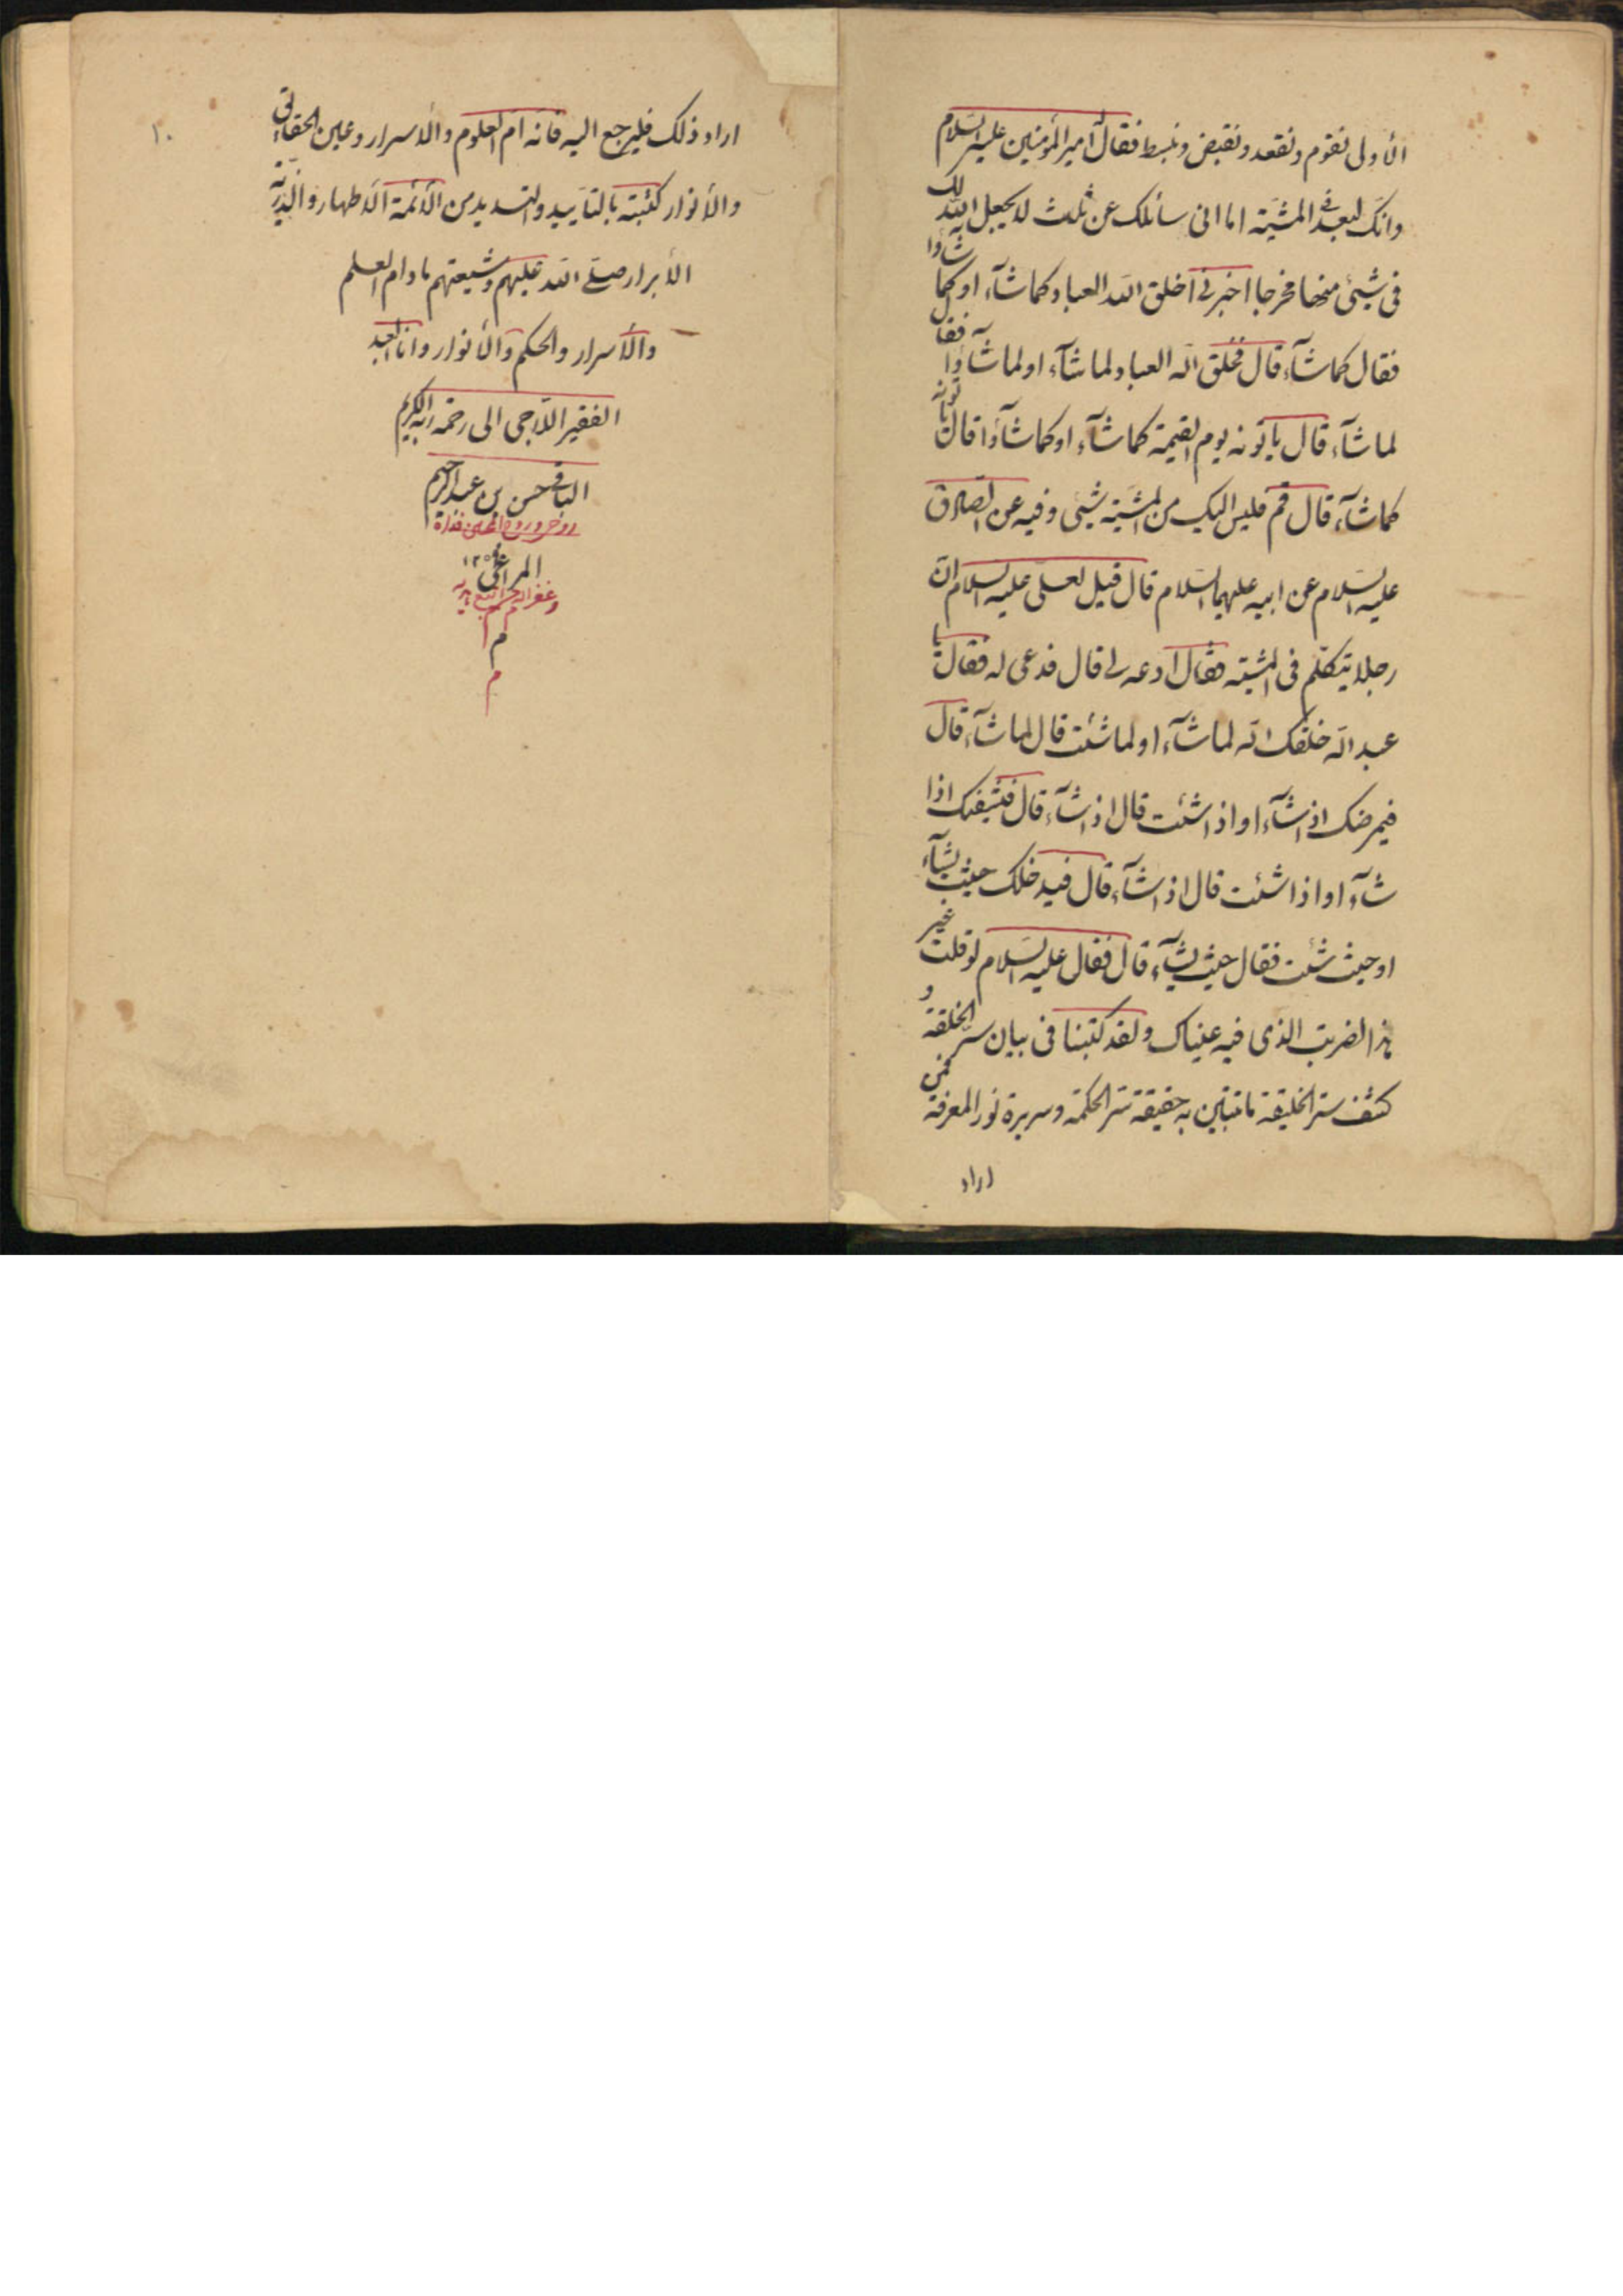 الأولى نقوم ونقعد ونقبض ونبسط فقال امير المؤمنين عليه السلام
وانك لبعد فى المشية اما انى سائلك عن ثلث لا يجعل الله لك
فى شيئ منها مخرجا اخبرنى أخلق الله العباد كما شآء او كما شاؤا
فقال كما شآء قال فخلق الله العباد لما شآء او لما شآؤا فقال
لما شآء قال يأتونه يوم القيمة كما شآء او كما شآؤا قال يأتونه
كما شآء قال قم فليس اليك من المشية شيئ وفيه عن الصادق
عليه السلام عن ابيه عليهما السلام قال قيل لعلى عليه السلام ان
رجلا يتكلم فى المشية فقال ادعه لى قال فدعى له فقال يا
عبد الله خلقك الله لما شآء او لما شئت قال لما شآء قال
فيمرضك اذا شآء او اذا شئت قال اذا شآء قال فيشفيك اذا
شآء او اذا شئت قال اذا شآء قال فيدخلك حيث يشآء
او حيث شئت فقال حيث يشآء قال فقال عليه السلام لو قلت غير
هذا لضربت الذى فيه عيناك ولقد كتبنا فى بيان سر الخلقة و
كشف ستر الخليقة ما تبين به حقيقة سر الحكمة وسريرة نور المعرفة فمن
اراد
١٠
اراد ذلك فليرجع اليه فانه ام العلوم والاسرار وعين الحقائق
والأنوار كتبته بالتأييد والتسديد من الأئمة الاطهار والذرية
الأبرار صلى الله عليهم وشيعتهم ما دام العلم
والأسرار والحكم والأنوار وانا العبد
الفقير الراجى الى رحمة ربه الكريم
حسن بن عبد الرحيم
المراغى
م
م